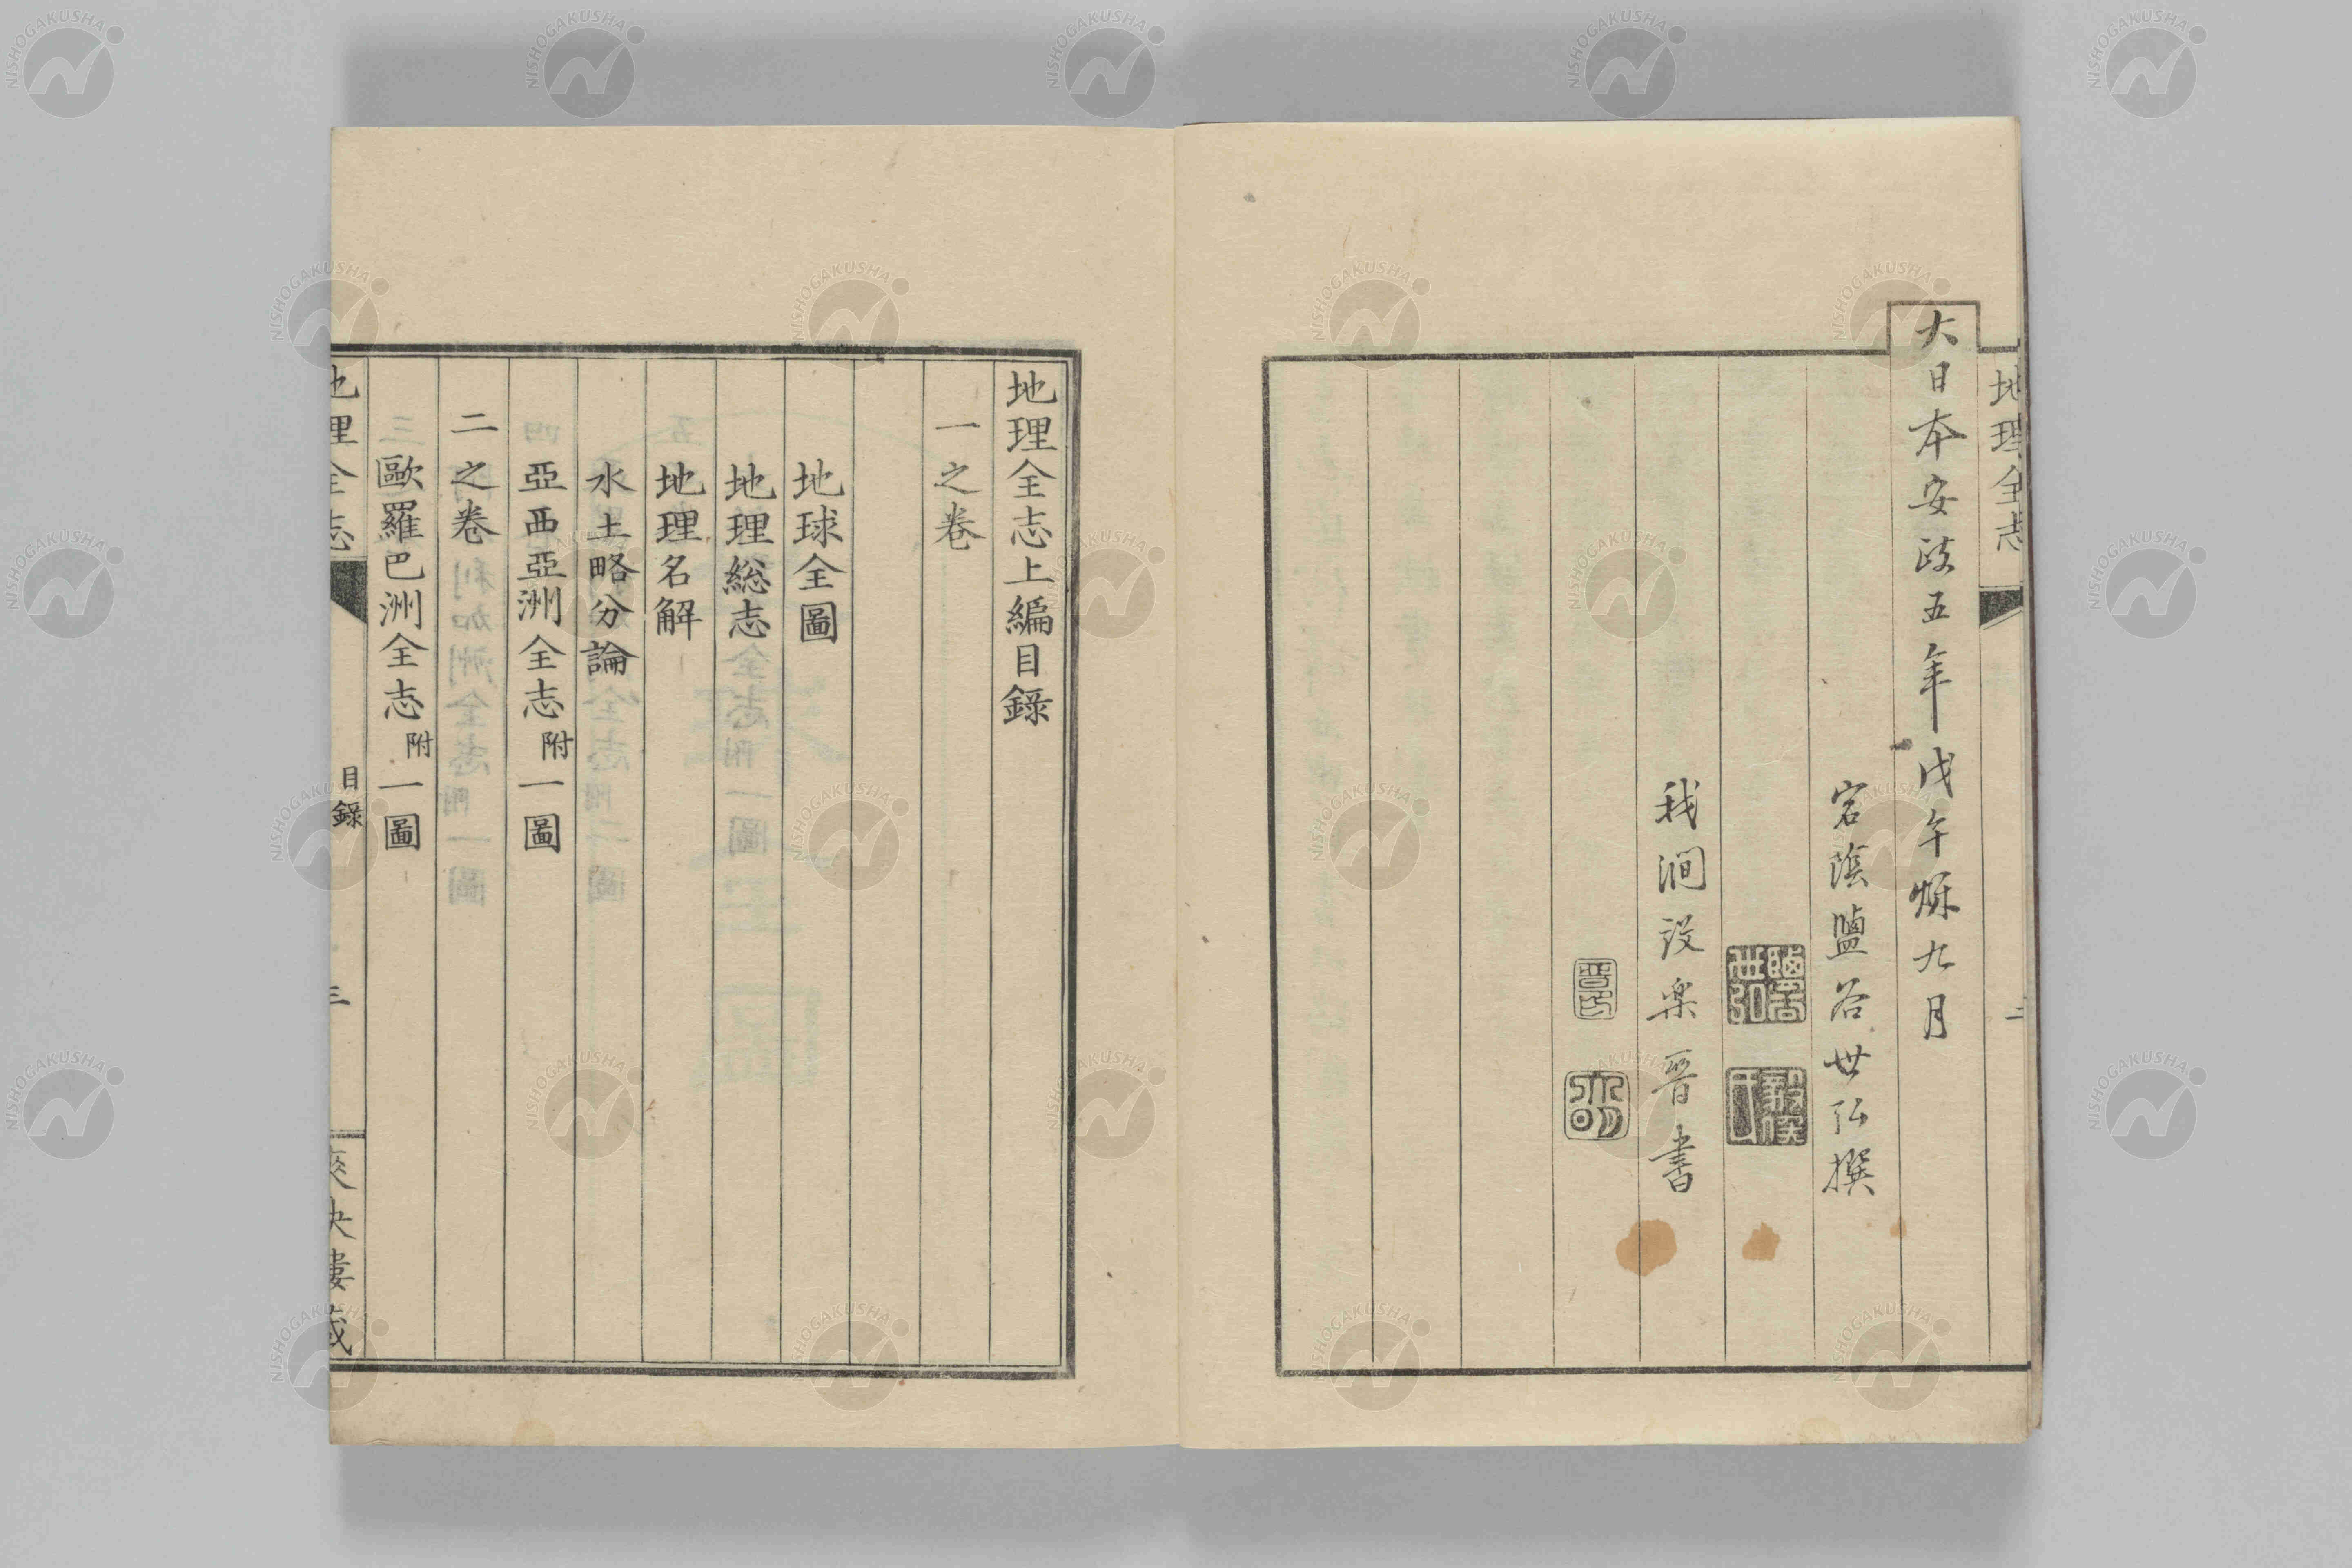 地理全志
大日本安政五年戊午秌九月
宕陰鹽谷世弘撰
我澗設楽晋書
地理全志上編目錄
一之卷
地球全圖
地理総志
地理名解
水土略分論
亞西亞洲全志附一圖
二之卷
歐羅巴洲全志附一圖
地理全志
目錄
三
爽快樓藏
NISHOGAKUSHA